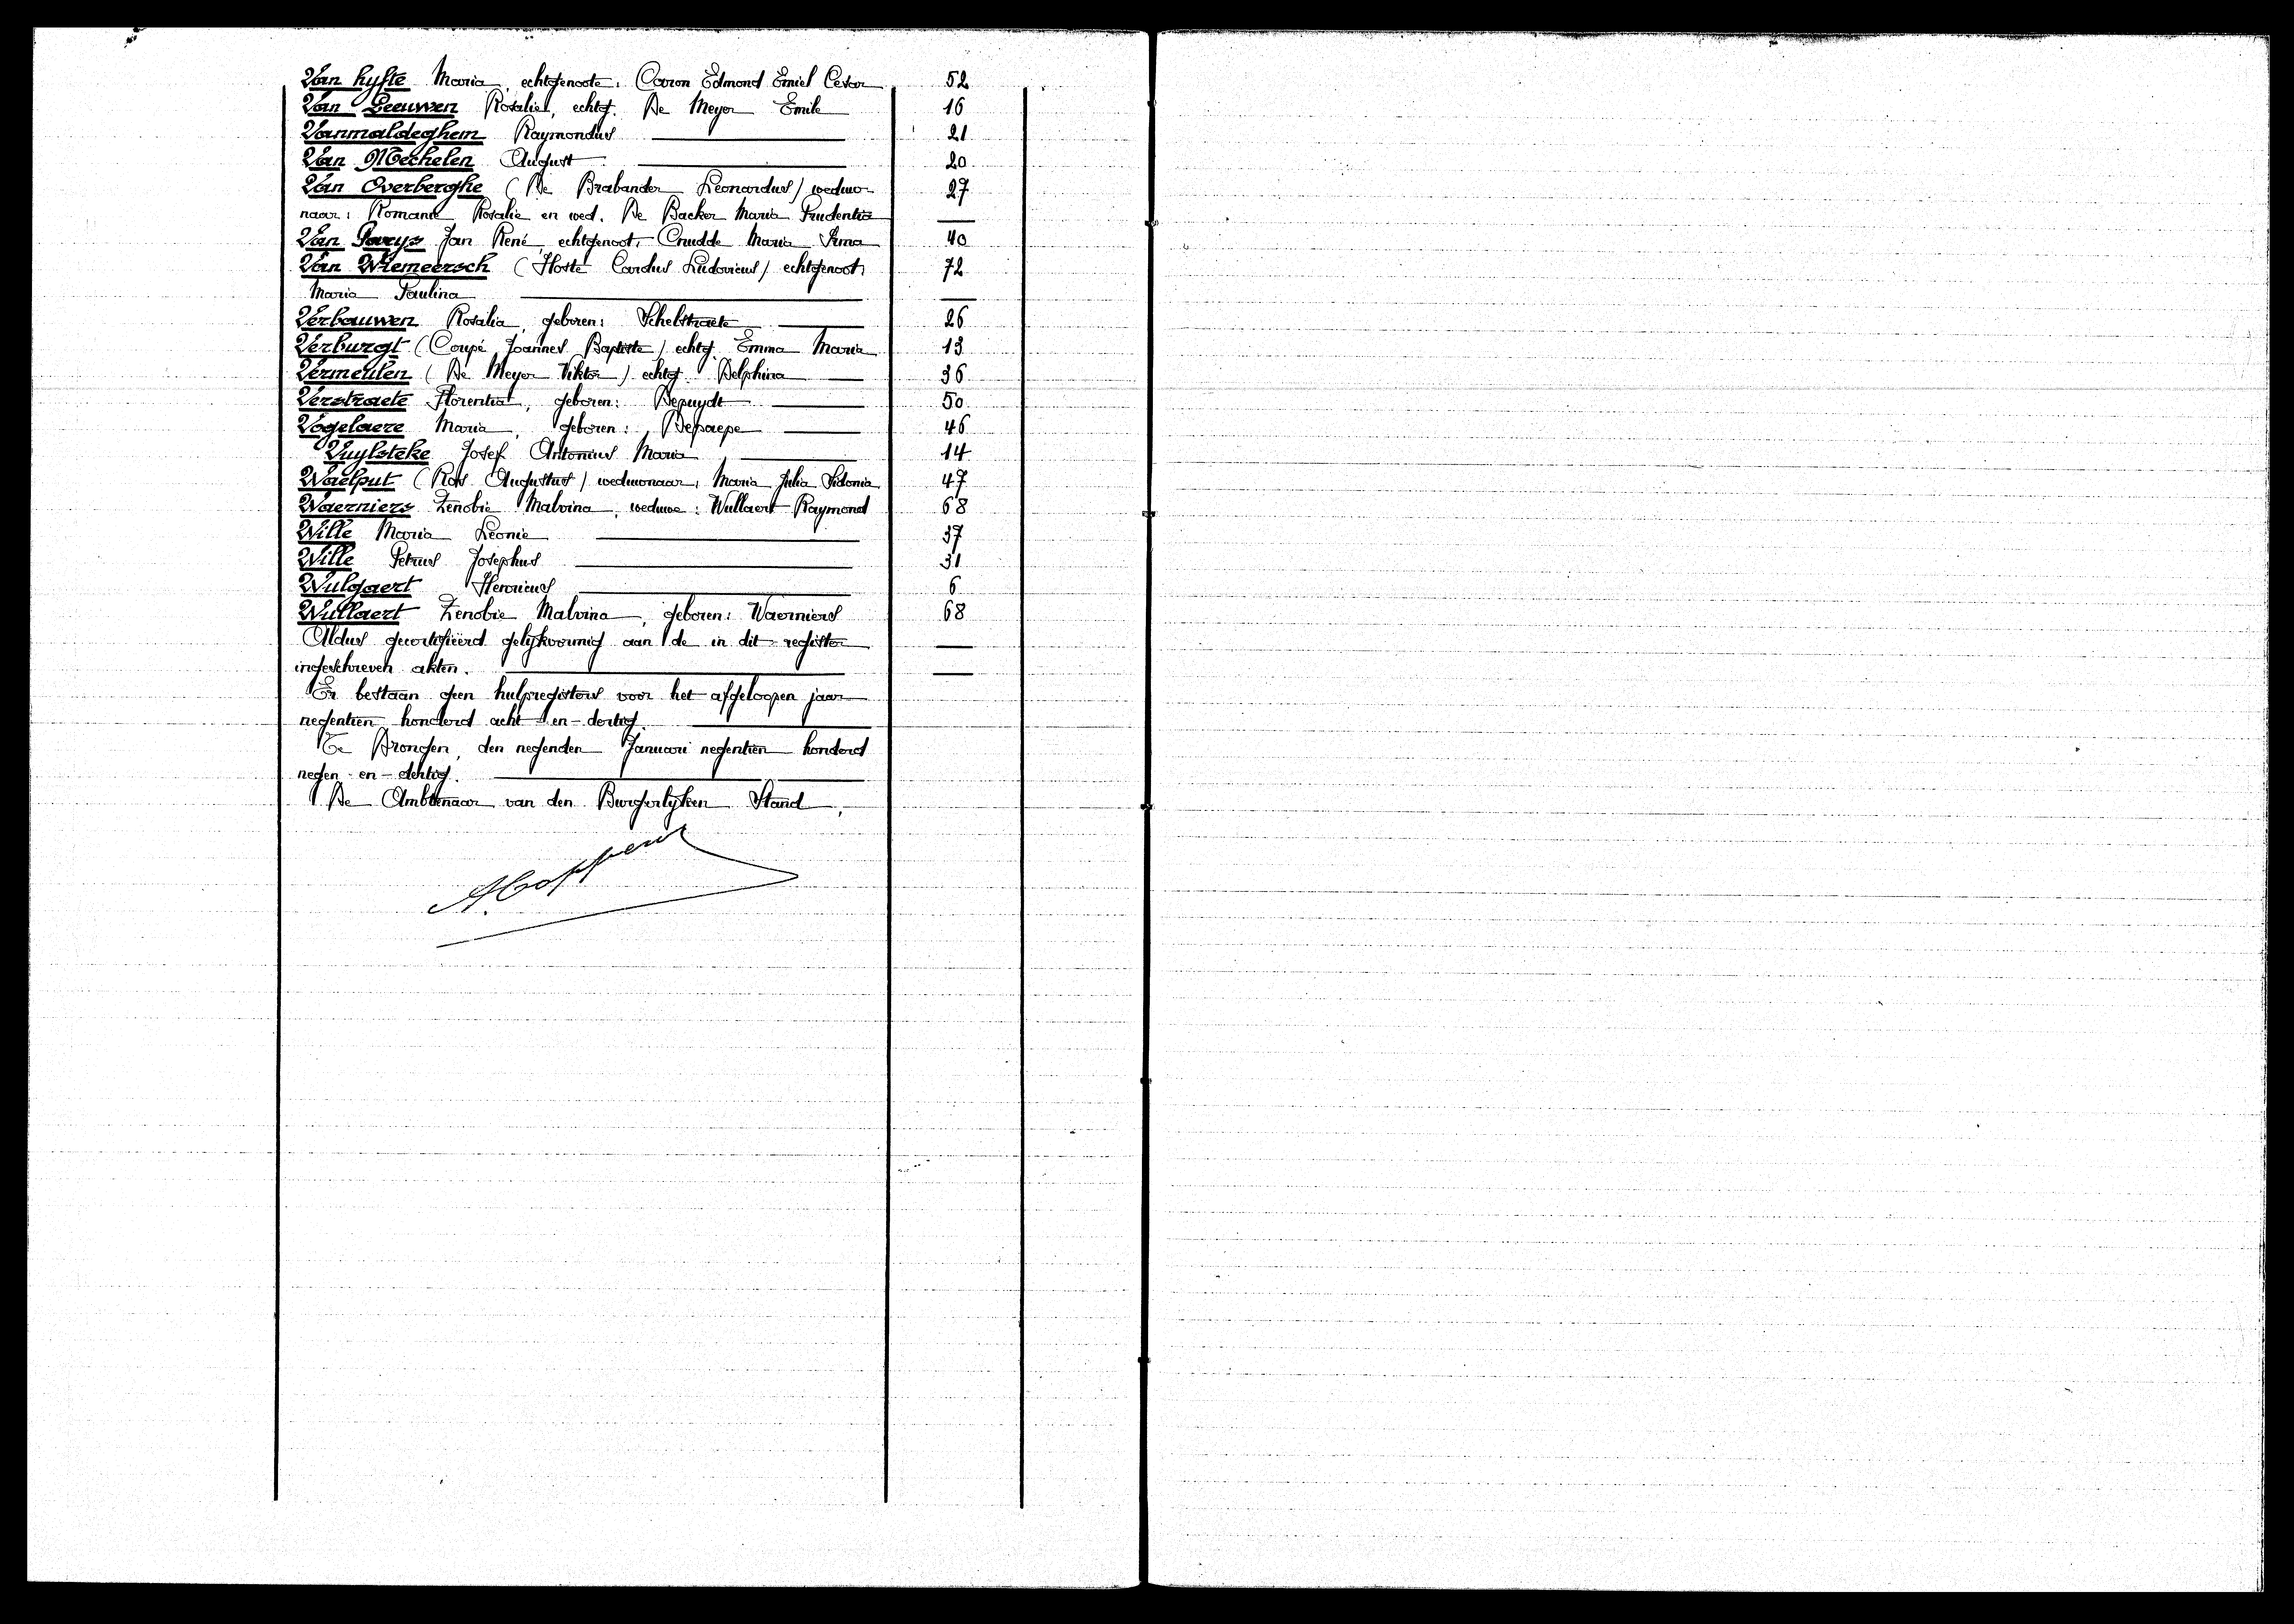 Van hyfte Maria, echtgenoote: Caron Edmond Emiel Cesar 52
Van Leeuwen Rosalie, echtg. De Meyer Emile 16
Vanmaldeghem Raymondus 21
Van Mechelen August 20
Van Overberghe (De Brabander Leonardus) weduw- 27
naar: Romanie Rosalie en wed. De Backer Maria Prudentia —
Van Parys Jan René, echtgenoot: Cnudde Maria Irma 40
Van Wiemeersch (Hoste Carolus Ludovicus) echtgenoot: 72
Maria Paulina —
Verbauwen Rosalia, geboren: Schelstraete 26
Verburgt (Coupé Joannes Baptiste) echtg. Emma Maria 13
Vermeulen (De Meyer Viktor) echtg. Delphina 36
Verstraete Florentia, geboren: Depuydt 50
Vogelaere Maria, geboren: Depaepe 46
Vuylsteke Josef Antonius Maria 14
Waelput (Ros Augustus) weduwnaar: Maria Julia Sidonia 47
Waerniers Zenobie Malvina, weduwe: Wullaert Raymond 68
Wille Maria Leonie 37
Wille Petrus Josephus 31
Wulgaert Henricus 6
Wullaert Zenobie Malvina, geboren: Waerniers 68
Aldus gecertifieerd gelijkvormig aan de in dit register —
ingeschreven akten. —
Er bestaan geen hulpregisters voor het afgeloopen jaar
negentien honderd acht-en-dertig.
Te Drongen, den negenden Januari negentien honderd
negen-en-dertig.
De Ambtenaar van den Burgerlijken Stand,
A. Coppens